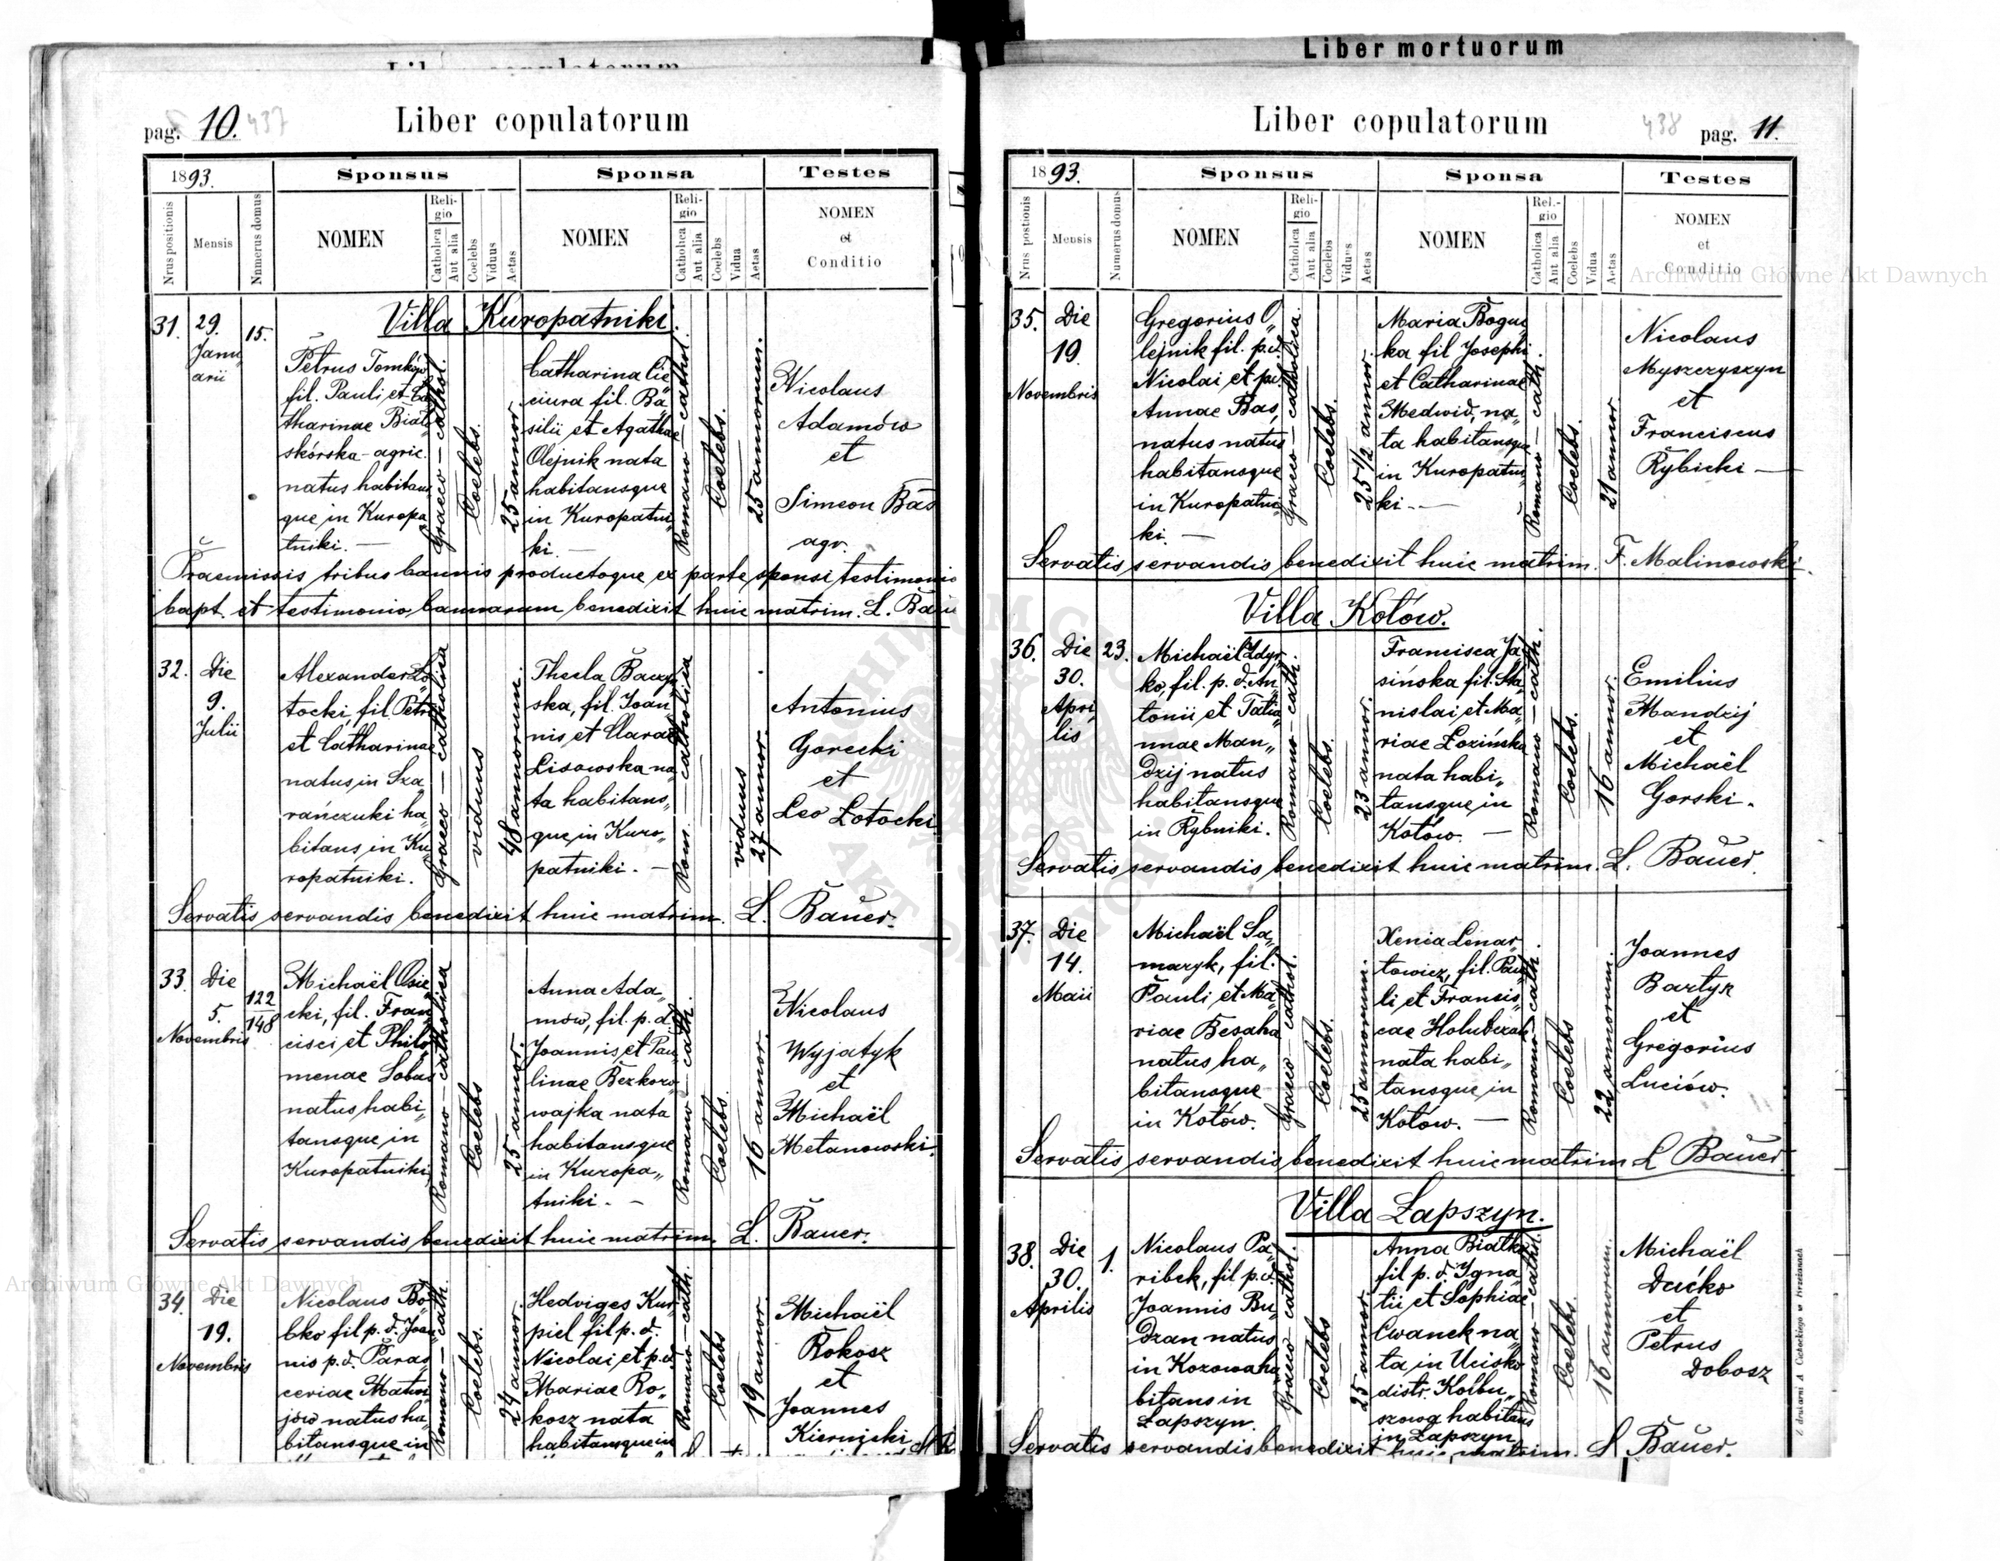 Liber mortuorum
pag. 10. 437
Liber copulatorum
1893.
Sponsus
Sponsa
Testes
Nrus positionis
Mensis
Numerus domus
NOMEN
Religio
Catholica
Aut alia
Coelebs
Viduus
Aetas
NOMEN
Religio
Catholica
Aut alia
Coelebs
Vidua
Aetas
NOMEN
et
Conditio
Villa Kuropatniki.
31.
29.
Januarii
15.
Petrus Tomków
fil. Pauli et Ca„
tharinae Biało„
skórska - agric.
natus habitans
que in Kuropa
tniki. —
Graeco - cathol.
Coelebs.
25 annor.
Catharina Cie„
ciura fil. Ba„
silii et Agathae
Olejnik nata
habitansque
in Kuropatni„
ki. —
Romano - cathol.
Coelebs.
25 annorum.
Nicolaus
Adamów
et
Simeon Bas
agr.
Praemissis tribus bannis productoque ex parte sponsi testimonio
bapt. et testimonio bannorum benedixit huic matrim. L. Bau
32.
Die
9.
Julii
Alexander Ło„
tocki, fil. Petri
et Catharinae
natus in Sza„
rańczuki ha
bitans in Ku
ropatniki.
Graeco - catholica
viduus
48 annorum.
Thecla Baczyń„
ska, fil. Joan„
nis et Clarae
Lisowska na„
ta habitans„
que in Kuro„
patniki. —
Rom. - catholica
viduus
27 annor.
Antonius
Gorecki
et
Leo Łotocki
Servatis servandis benedixit huic matrim. L. Bauer.
33.
Die
5.
Novembris
122
148
Michaël Osie„
cki, fil. Fran„
cisci et Philo„
menae Sobas
natus habi„
tansque in
Kuropatniki
Romano - catholica
Coelebs
25 annor.
Anna Ada„
mów, fil. p. d.
Joannis et Pau„
linae Bezkoro„
wajka nata
habitansque
in Kuropa„
tniki. —
Romano - cath.
Coelebs.
16 annor.
Nicolaus
Wyjatyk
et
Michaël
Metanowski.
Servatis servandis benedixit huic matrim. L. Bauer.
34.
Die
19.
Novembris
Nicolaus Bo„
bko fil p. d. Joan„
nis p. d. Paras„
ceviae Matwi„
jów natus ha„
bitansque in
Romano - cath.
Coelebs.
24 annor.
Hedviges Kur„
piel fil p. d.
Nicolai et p. d.
Mariae Ro„
kosz nata
habitansque in
Romano - cath.
Coelebs
19 annor.
Michaël
Rokosz
et
Joannes
Kiernicki
438 pag. 11.
Liber copulatorum
1893.
Sponsus
Sponsa
Testes
Nrus postionis
Mensis
Numerus domus
NOMEN
Religio
Catholica
Aut alia
Coelebs
Viduus
Aetas
NOMEN
Rel.-gio
Catholica
Aut alia
Coelebs
Vidua
Aetas
NOMEN
et
Conditio
35.
Die
19.
Novembris
Gregorius O„
lejnik fil. p. d.
Nicolai et p. d.
Annae Bas,
natus natus
habitansque
in Kuropatni„
ki. —
Graeco - catholica.
Coelebs.
25 1/2 annor.
Maria Bogu„
ka fil Josephi
et Catharinae
Medwid, na„
ta habitansque
in Kuropatni„
ki. —
Romano - cath.
Coelebs.
21 annor.
Nicolaus
Myszczyszyn
et
Franciscus
Rybicki —
Servatis servandis benedixit huic matrim. F. Malinowski.
Villa Kotów.
36.
Die
30.
Apri„
lis
23.
Michaël Zdyr„
ko, fil. p. d. An„
tonii et Tatia„
nnae Man„
dzij natus
habitansque
in Rybniki.
Romano - cath.
Coelebs.
23 annor.
Francisca Ja„
sińska fil. Sta„
nislai et Ma„
riae Łozińska
nata habi„
tansque in
Kotów. —
Romano - cath.
Coelebs.
16 annor.
Emilius
Mandzij
et
Michaël
Gorski.
Servatis servandis benedixit huic matrim. L. Bauer.
37.
Die
14.
Maii
Michaël Sa„
maryk, fil.
Pauli, et Ma„
riae Besaha
natus ha„
bitansque
in Kotów.
Graeco - cathol.
Coelebs.
25 annorum.
Xenia Lenar„
towicz, fil. Pau„
li et Francis„
cae Holubczak
nata habi„
tansque in
Kotów. —
Romano - cath.
Coelebs
22 annorum.
Joannes
Bartyk
et
Gregorius
Luciów.
Servatis servandis benedixit huic matrim L Bauer.
Villa Łapszyn.
38.
Die
30.
Aprilis
1.
Nicolaus Pa„
ribek, fil p. d.
Joannis Bu„
dzan natus
in Kozowa ha
bitans in
Łapszyn.
Graeco - cathol.
Coelebs
25 annor.
Anna Białka
fil p. d. Igna„
tii et Sophiae
Cwanek na„
ta in Ucisko
distr. Kolbu„
szowa habitans
in Łapszyn
Romano - cathol.
Coelebs.
16 annorum.
Michaël
Dućko
et
Petrus
Dobosz
Servatis servandis benedixit huic matrim. L Bauer.
Z drukarni A. Cichockiego w Brzeżanach
Archiwum Główne Akt Dawnych
Archiwum Główne Akt Dawnych